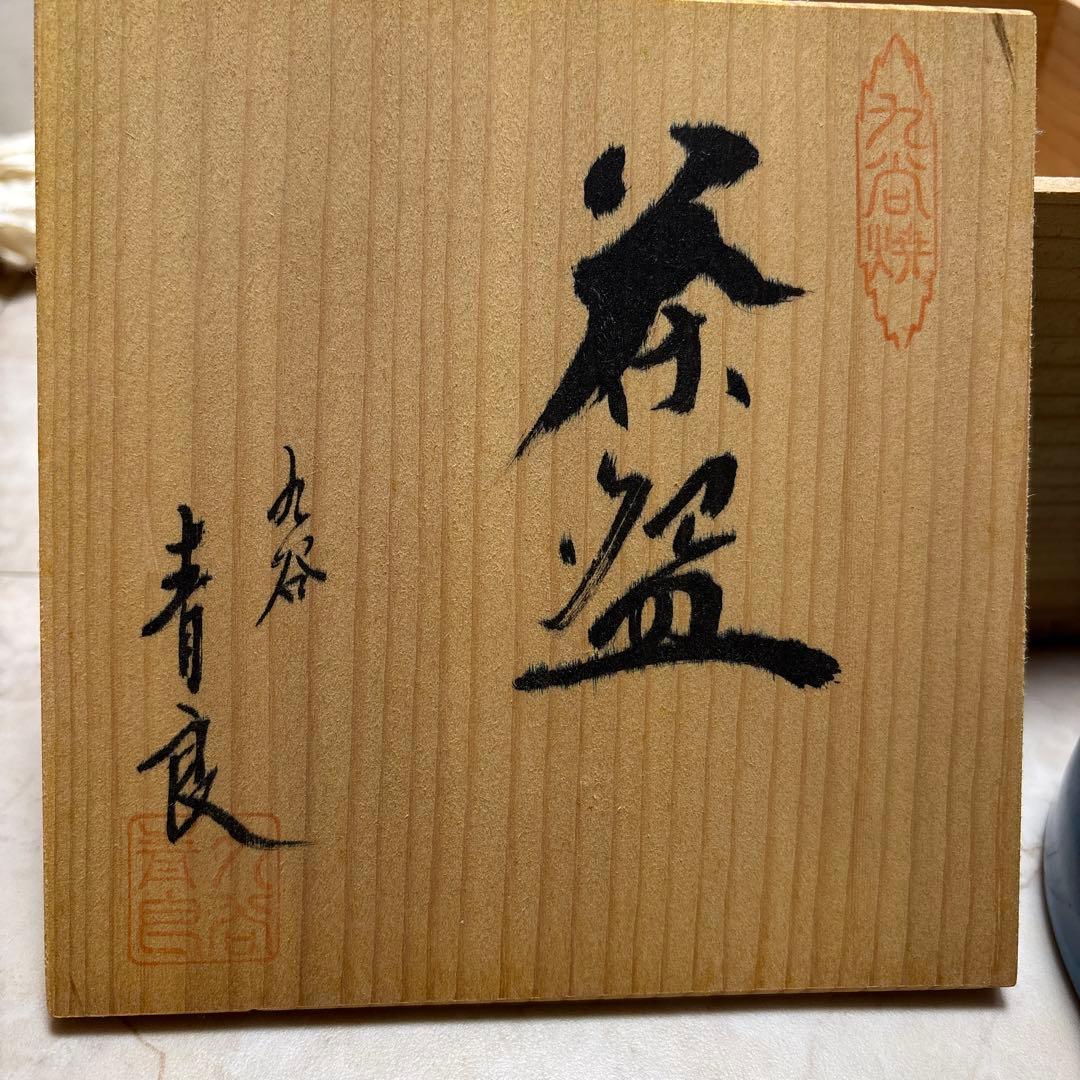 九谷焼
茶盌
九谷
青良
九谷
青良